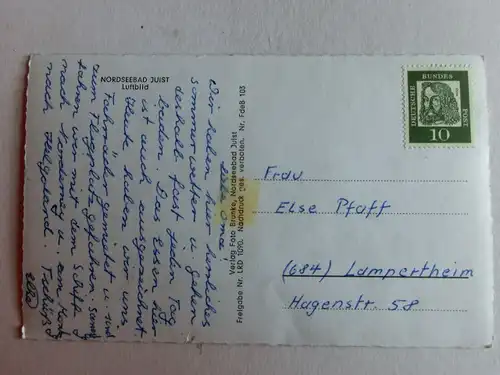 NORDSEEBAD JUIST
Luftbild
Liebe Oma!
Wir haben hier herrliches
Sommerwetter u. gehen
deshalb fast jeden Tag
baden. Das Essen hier
ist auch ausgezeichnet
Heute haben wir uns
Fahrräder gemietet u. sind
zum Flugplatz gefahren.
fahren wir mit dem Schiff
nach Norderney u. am
nach Helgoland.
Verlag Foto Brunke, Nordseebad Juist
Freigabe Nr. LRD 1090. Nachdruck ges. verboten. Nr. FdeB 103
DEUTSCHE
BUNDES
POST
10
Frau
Else Pfaff
(684) Lampertheim
Hagenstr. 58